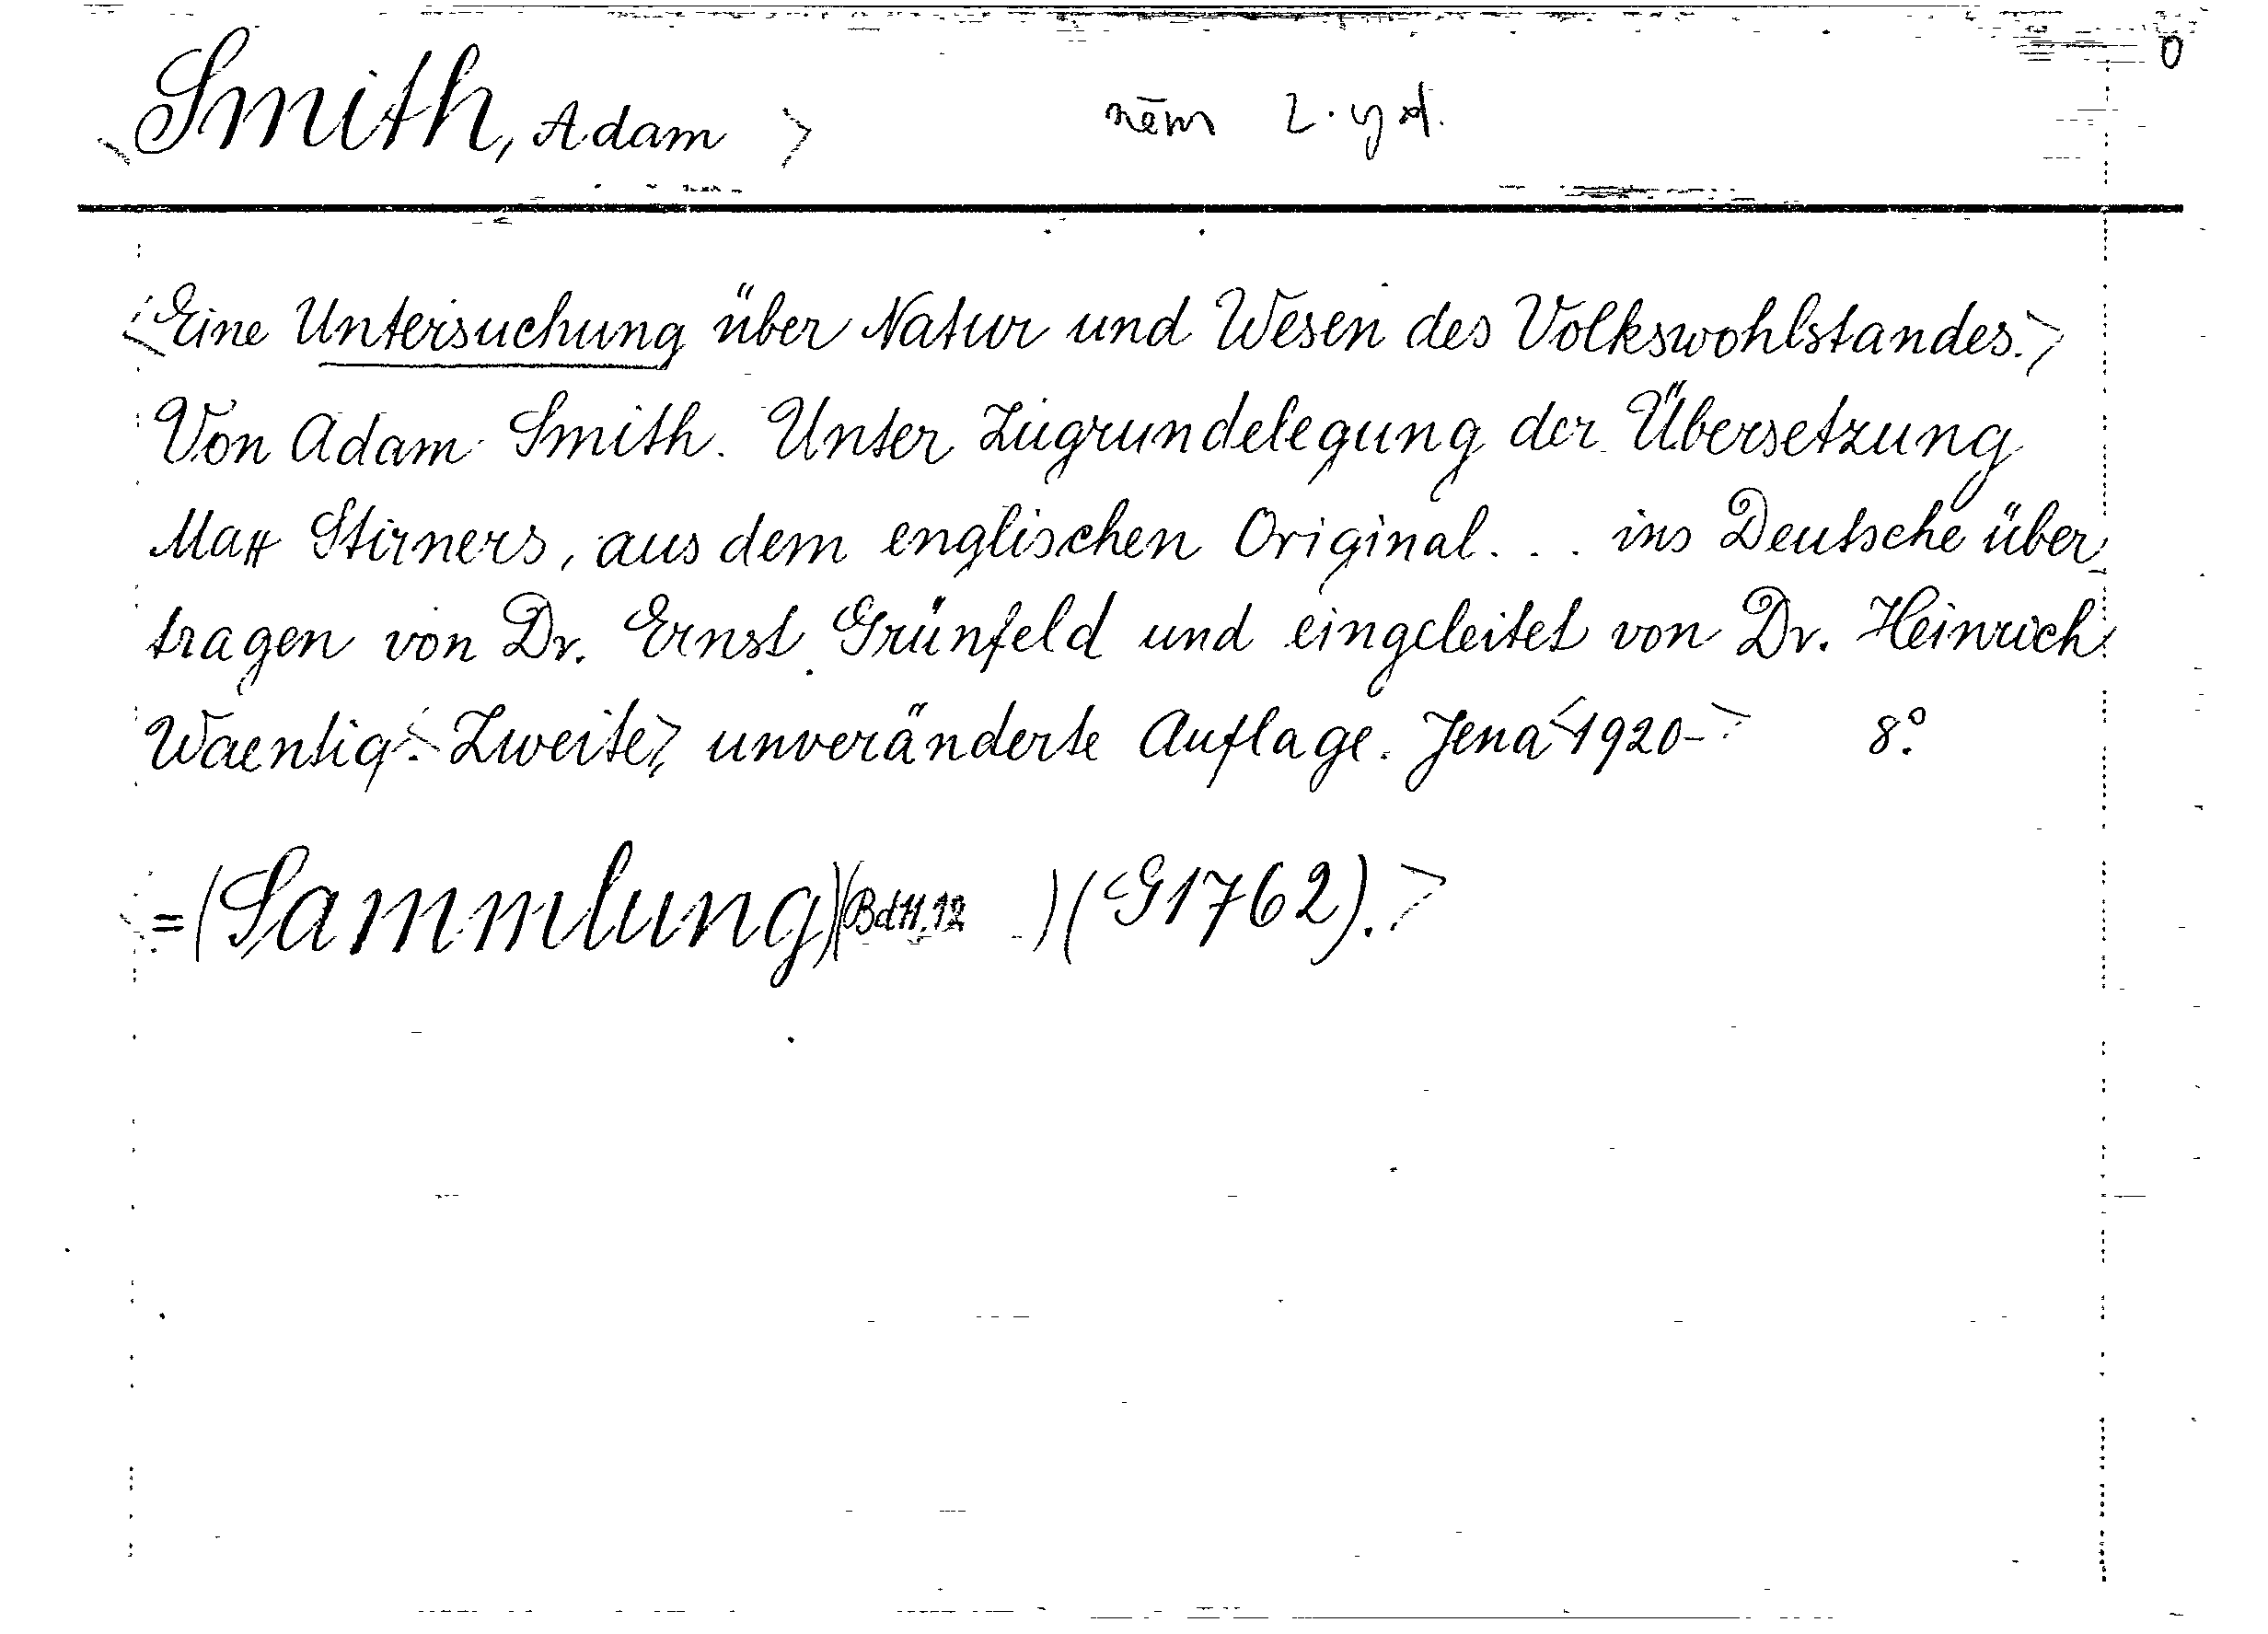 0
<Smith, Adam> něm 2. yd.
<Eine Untersuchung über Natur und Wesen des Volkswohlstandes.>
Von Adam Smith. Unter Zugrundelegung der Übersetzung
Max Stirners, aus dem englischen Original... ins Deutsche über
tragen von Dr. Ernst Grünfeld und eingeleitet von Dr. Heinrich
Waentig. <Zweite>, unveränderte Auflage. Jena <1920-> 8°.
<=(Sammlung)(Bd 11.12 )(G1762).>